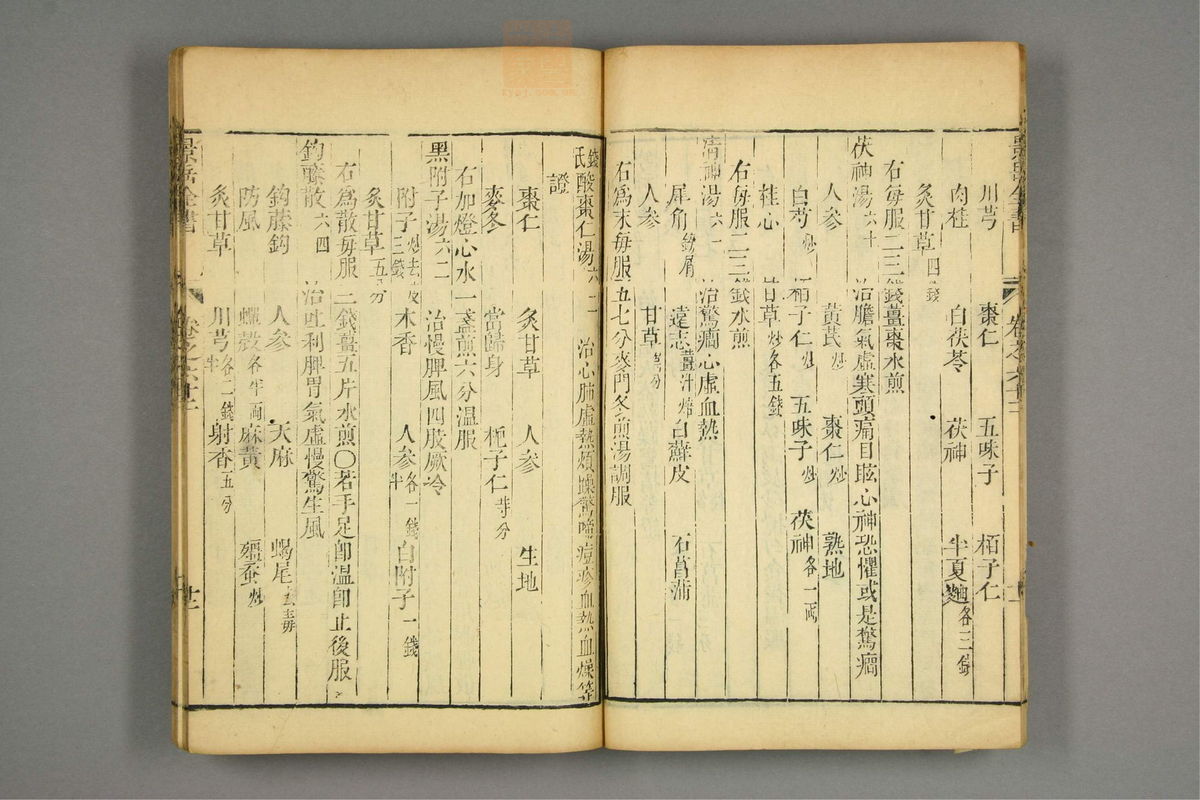 景岳全書
川芎 棗仁 五味子 栢子仁
肉桂 白茯苓 茯神 半夏麯各三錢
炙甘草四錢
右每服二三錢薑棗水煎
茯神湯六十 治膽氣虛寒頭痛目眩心神恐懼或是驚癎
人參 黃芪炒 棗仁炒 熟地
白芍炒 栢子仁炒 五味子炒 茯神各一兩
桂心 甘草炒各五錢
右每服二三錢水煎
清神湯六一 治驚癎心虛血熱
犀角鎊屑 遠志薑汁焙 白蘚皮 石菖蒲
人參 甘草
右爲末每服五七分麥門冬煎湯調服
錢氏酸棗仁湯 治心肺虛熱煩躁驚啼痘疹血熱血燥等
證
棗仁 炙甘草 人參 生地
麥冬 當歸身 梔子仁等分
右加燈心水一盞煎六分温服
黑附子湯六二 治慢脾風四肢厥冷
附子炒去皮三錢 木香 人參各一錢半 白附子一錢
炙甘草五分
右爲散每服二錢薑五片水煎〇若手足卽温卽止後服
鈎藤散六四 治吐利脾胃氣虛慢驚生風
鈎藤鈎 人參 天麻 蝎尾去毒
防風 蟬殼各半兩 麻黃 殭蚕炒
炙甘草 川芎各二錢半 射香五分
景岳全書